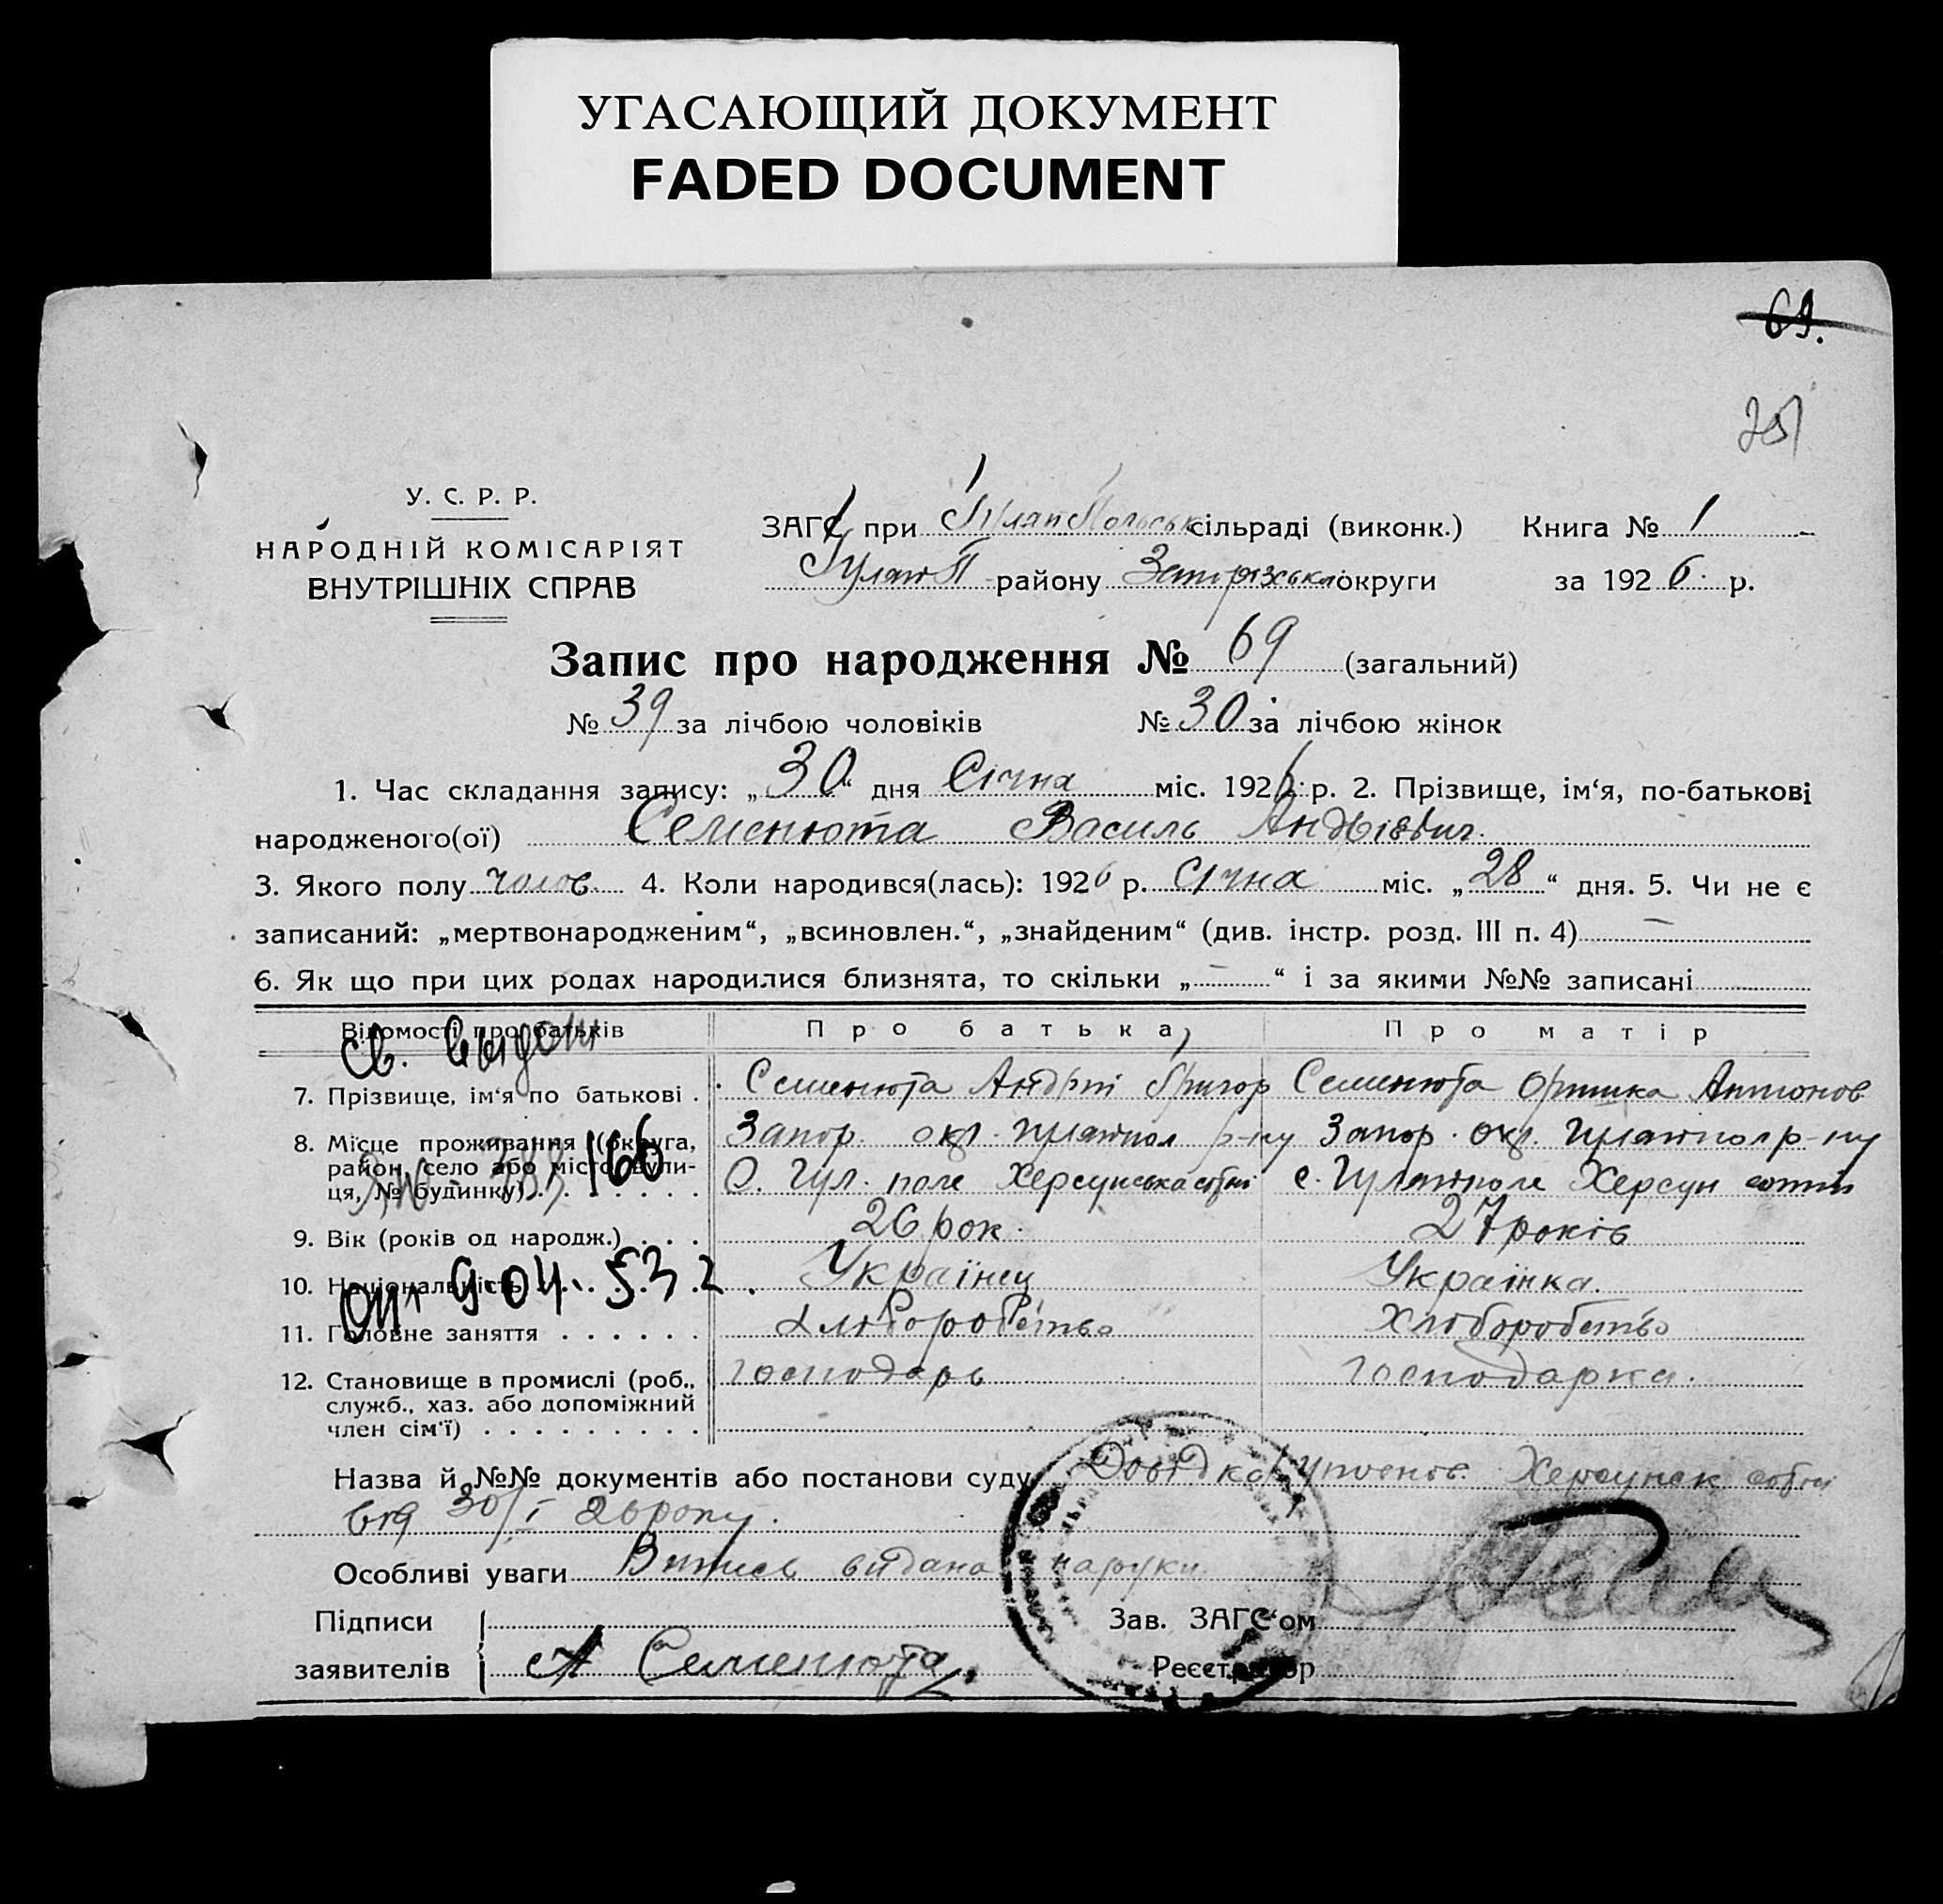 УГАСАЮЩИЙ ДОКУМЕНТ
FADED DOCUMENT
69.
У. С. Р. Р.
НАРОДНІЙ КОМІСАРІЯТ
ВНУТРІШНІХ СПРАВ
ЗАГС при ГуляйПольськ сільраді (виконк.) Книга № 1
Гуляй П району Запорізька округи за 1926 р.
Запис про народження № 69 (загальний)
№ 39 за лічбою чоловіків № 30 за лічбою жінок
1. Час складання запису: „30“ дня Січня міс. 1926 р. 2. Прізвище, ім‘я, по-батькові
народженого(ої) Семенюта Василь Андрієвич.
3. Якого полу чолов. 4. Коли народився(лась): 1926 р. Січня міс. „28“ дня. 5. Чи не є
записаний: „мертвонародженим“, „всиновлен.“, „знайденим“ (див. інстр. розд. III п. 4) —
6. Як що при цих родах народилися близнята, то скільки „—“ і за якими №№ записані
Відомості про батьків Про батька Про матір
св. выдан
7. Прізвище, ім‘я по батькові . Семенюта Андрій Григор Семенюта Оришка Антонов
8. Місце проживання (округа, Запор. окр. Гуляйпол р-ну Запор. окр. Гуляйпол р-ну
район, село або місто, вули- 166
ця, № будинку) С. Гул. поле Херсунська сотні с. Гуляйполе Херсун сотні
9. Вік (років од народж.) . . . 26 рок. 27 років
10. Національність Українец Українка.
от 9.04.53 г.
11. Головне заняття . . . . . . Хліборобство Хліборобство
12. Становище в промислі (роб., господарь господарка.
служб., хаз. або допоміжний
член сім‘ї) . . . . . . . . .
Назва й №№ документів або постанови суду Довідка Уповнов. Херсунск сотні
від 30/I 26 року.
Особливі уваги Витись видана наруки
Підписи
заявителів А Семенюта
Зав. ЗАГС‘ом
Реєстратор